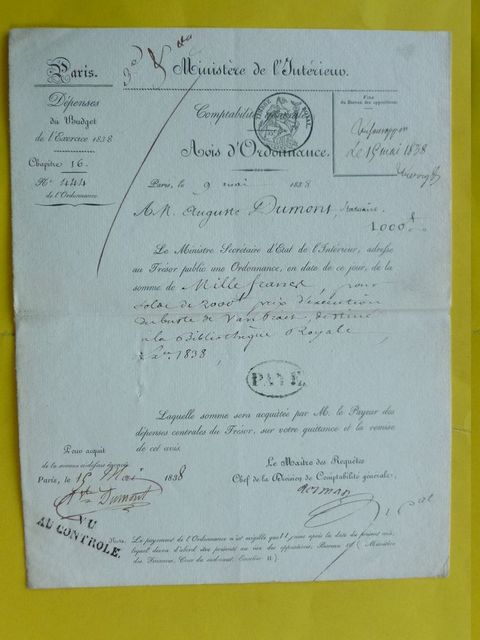 Paris.
Ministère de l'Intérieur.
Dépenses
du Budget
de l'Exercice 1838
Comptabilité générale
Visa
du Bureau des oppositions
Le 15 mai 1838
Chapitre 16.
Avis d'Ordonnance.
N° 444
de l'Ordonnance
Paris, le 9 mai 1838
A M. Auguste Dumont, Statuaire
1,000 f
Le Ministre Secrétaire d'État de l'Intérieur, adresse
au Trésor public une Ordonnance, en date de ce jour, de la
somme de Mille francs, pour
solde de 2000 f prix d'exécution
du buste de Van Praet, destiné
à la Bibliothèque Royale
1838,
PAYÉ
Laquelle somme sera acquittée par M. le Payeur des
dépenses centrales du Trésor, sur votre quittance et la remise
de cet avis.
Pour acquit
de la somme ci-dessus énoncée
Paris, le 15 Mai 1838
Le Maître des Requêtes
Chef de la Division de Comptabilité générale,
Dumont
VU
AU CONTROLE.
Nota. Le payement de l'Ordonnance n'est exigible que 11 jours après la date du présent avis,
lequel devra d'abord être présenté au visa des oppositions, Bureau (Ministère
des Finances, Cour du